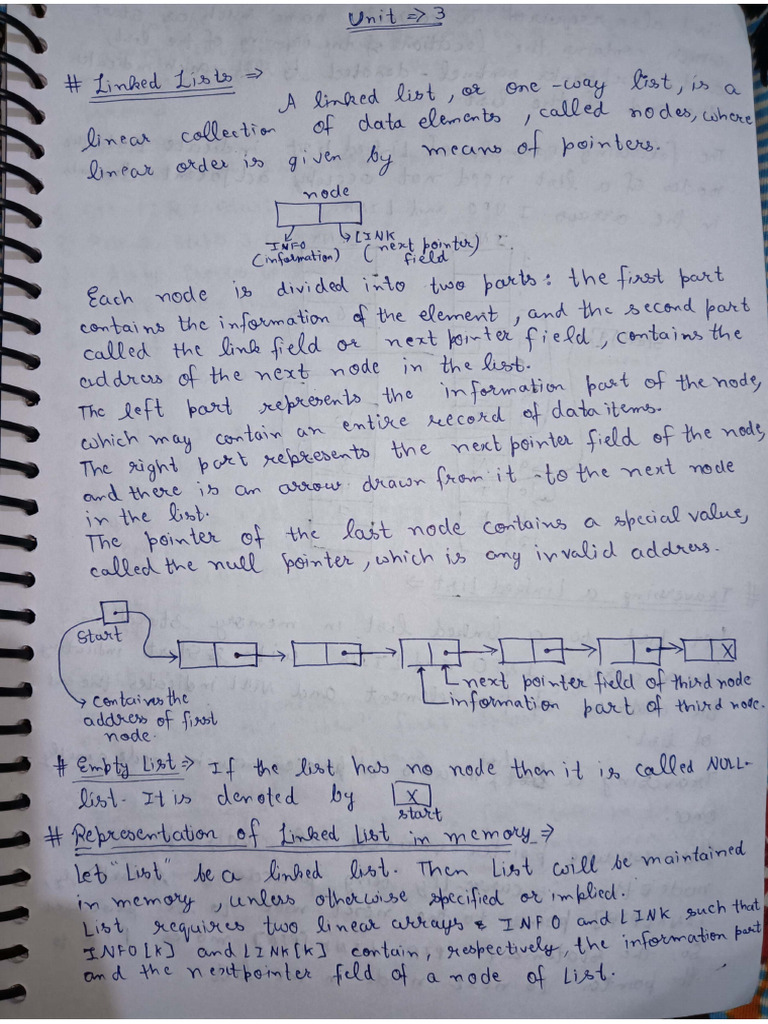 Unit => 3
# Linked Lists =>
A linked list, or one-way list, is a
linear collection of data elements, called nodes, where
linear order is given by means of pointers.
node
INFO LINK
(information) (next pointer)
field
Each node is divided into two parts: the first part
contains the information of the element, and the second part
called the link field or next pointer field, contains the
address of the next node in the list.
The left part represents the information part of the node,
which may contain an entire record of data items.
The right part represents the next pointer field of the node,
and there is an arrow drawn from it to the next node
in the list.
The pointer of the last node contains a special value,
called the null pointer, which is any invalid address.
Start
X
next pointer field of third node
information part of third node.
contains the
address of first
node.
# Empty List => If the list has no node then it is called NULL-
list. It is denoted by X
start
# Representation of Linked List in memory =>
Let "List" be a linked list. Then List will be maintained
in memory, unless otherwise specified or implied.
List requires two linear arrays INFO and LINK such that
INFO[K] and LINK[K] contain, respectively, the information part
and the nextpointer feld of a node of List.